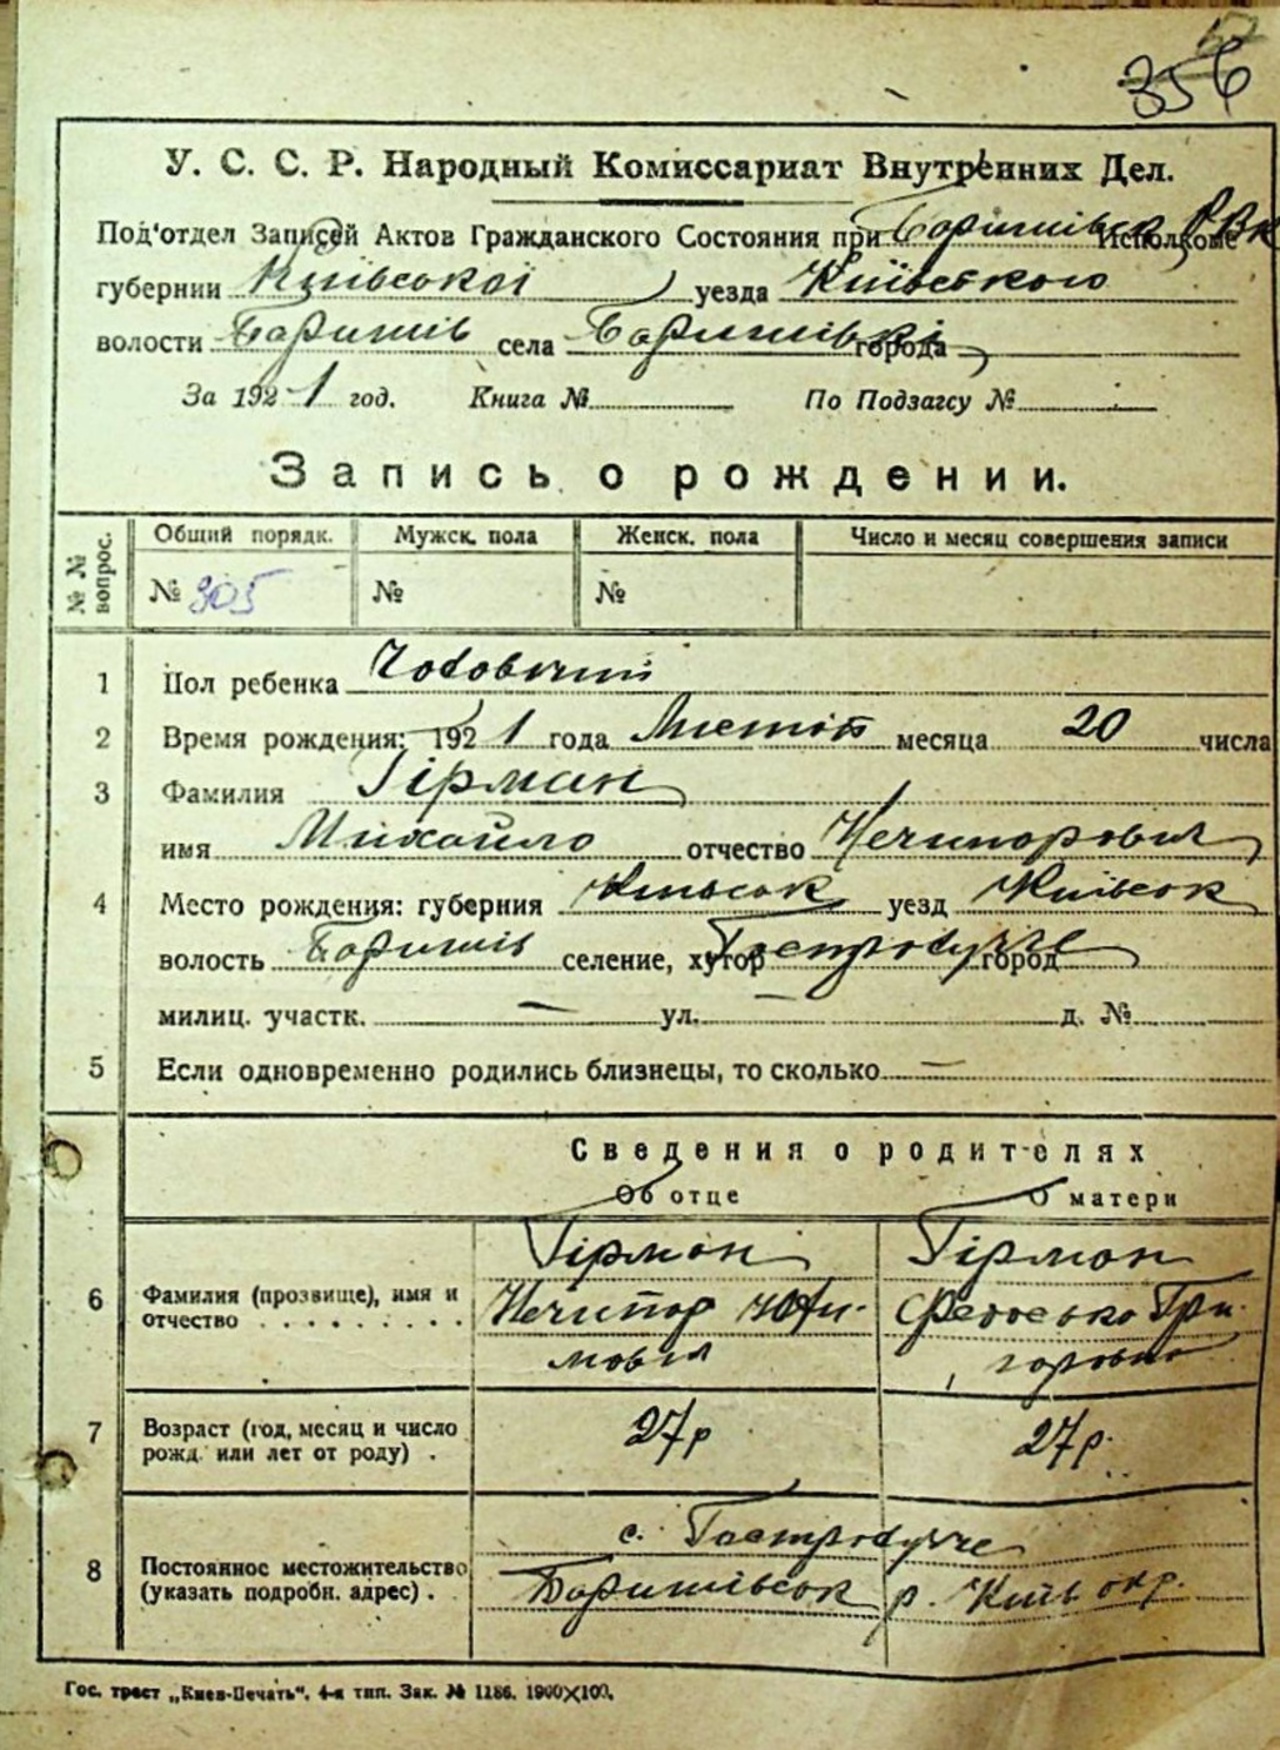 356
У. С. С. Р. Народный Комиссариат Внутренних Дел.
Под'отдел Записей Актов Гражданского Состояния при Баришівськ РВК Исполкоме
губернии Київської уезда Київського
волости Баришів села Баришівкі города
За 1921 год. Книга № По Подзагсу №
Запись о рождении.
№ № вопрос. Общий порядк. Мужск. пола Женск. пола Число и месяц совершения записи
№ 305 № №
1 Пол ребенка Чоловичий
2 Время рождения: 1921 года Листоп месяца 20 числа
3 Фамилия Гірман
имя Михайло отчество Нечипорович
4 Место рождения: губерния Київськ уезд Київськ
волость Баришів селение, хутор Гостролуччє город
милиц. участк. — ул. — д. №
5 Если одновременно родились близнецы, то сколько —
Сведения о родителях
Об отце О матери
Гірман Гірман
6 Фамилия (прозвище), имя и отчество . . . . . . . . . Нечипор Юхи- Федоська Гри-
мович горовна
7 Возраст (год, месяц и число рожд. или лет от роду) . 27 р 27 р.
с. Гостролуччє
8 Постоянное местожительство (указать подробн. адрес) . Баришівськ р. Київ окр.
Гос. трест „Киев-Печать“. 4-я тип. Зак. № 1186. 1900×100.